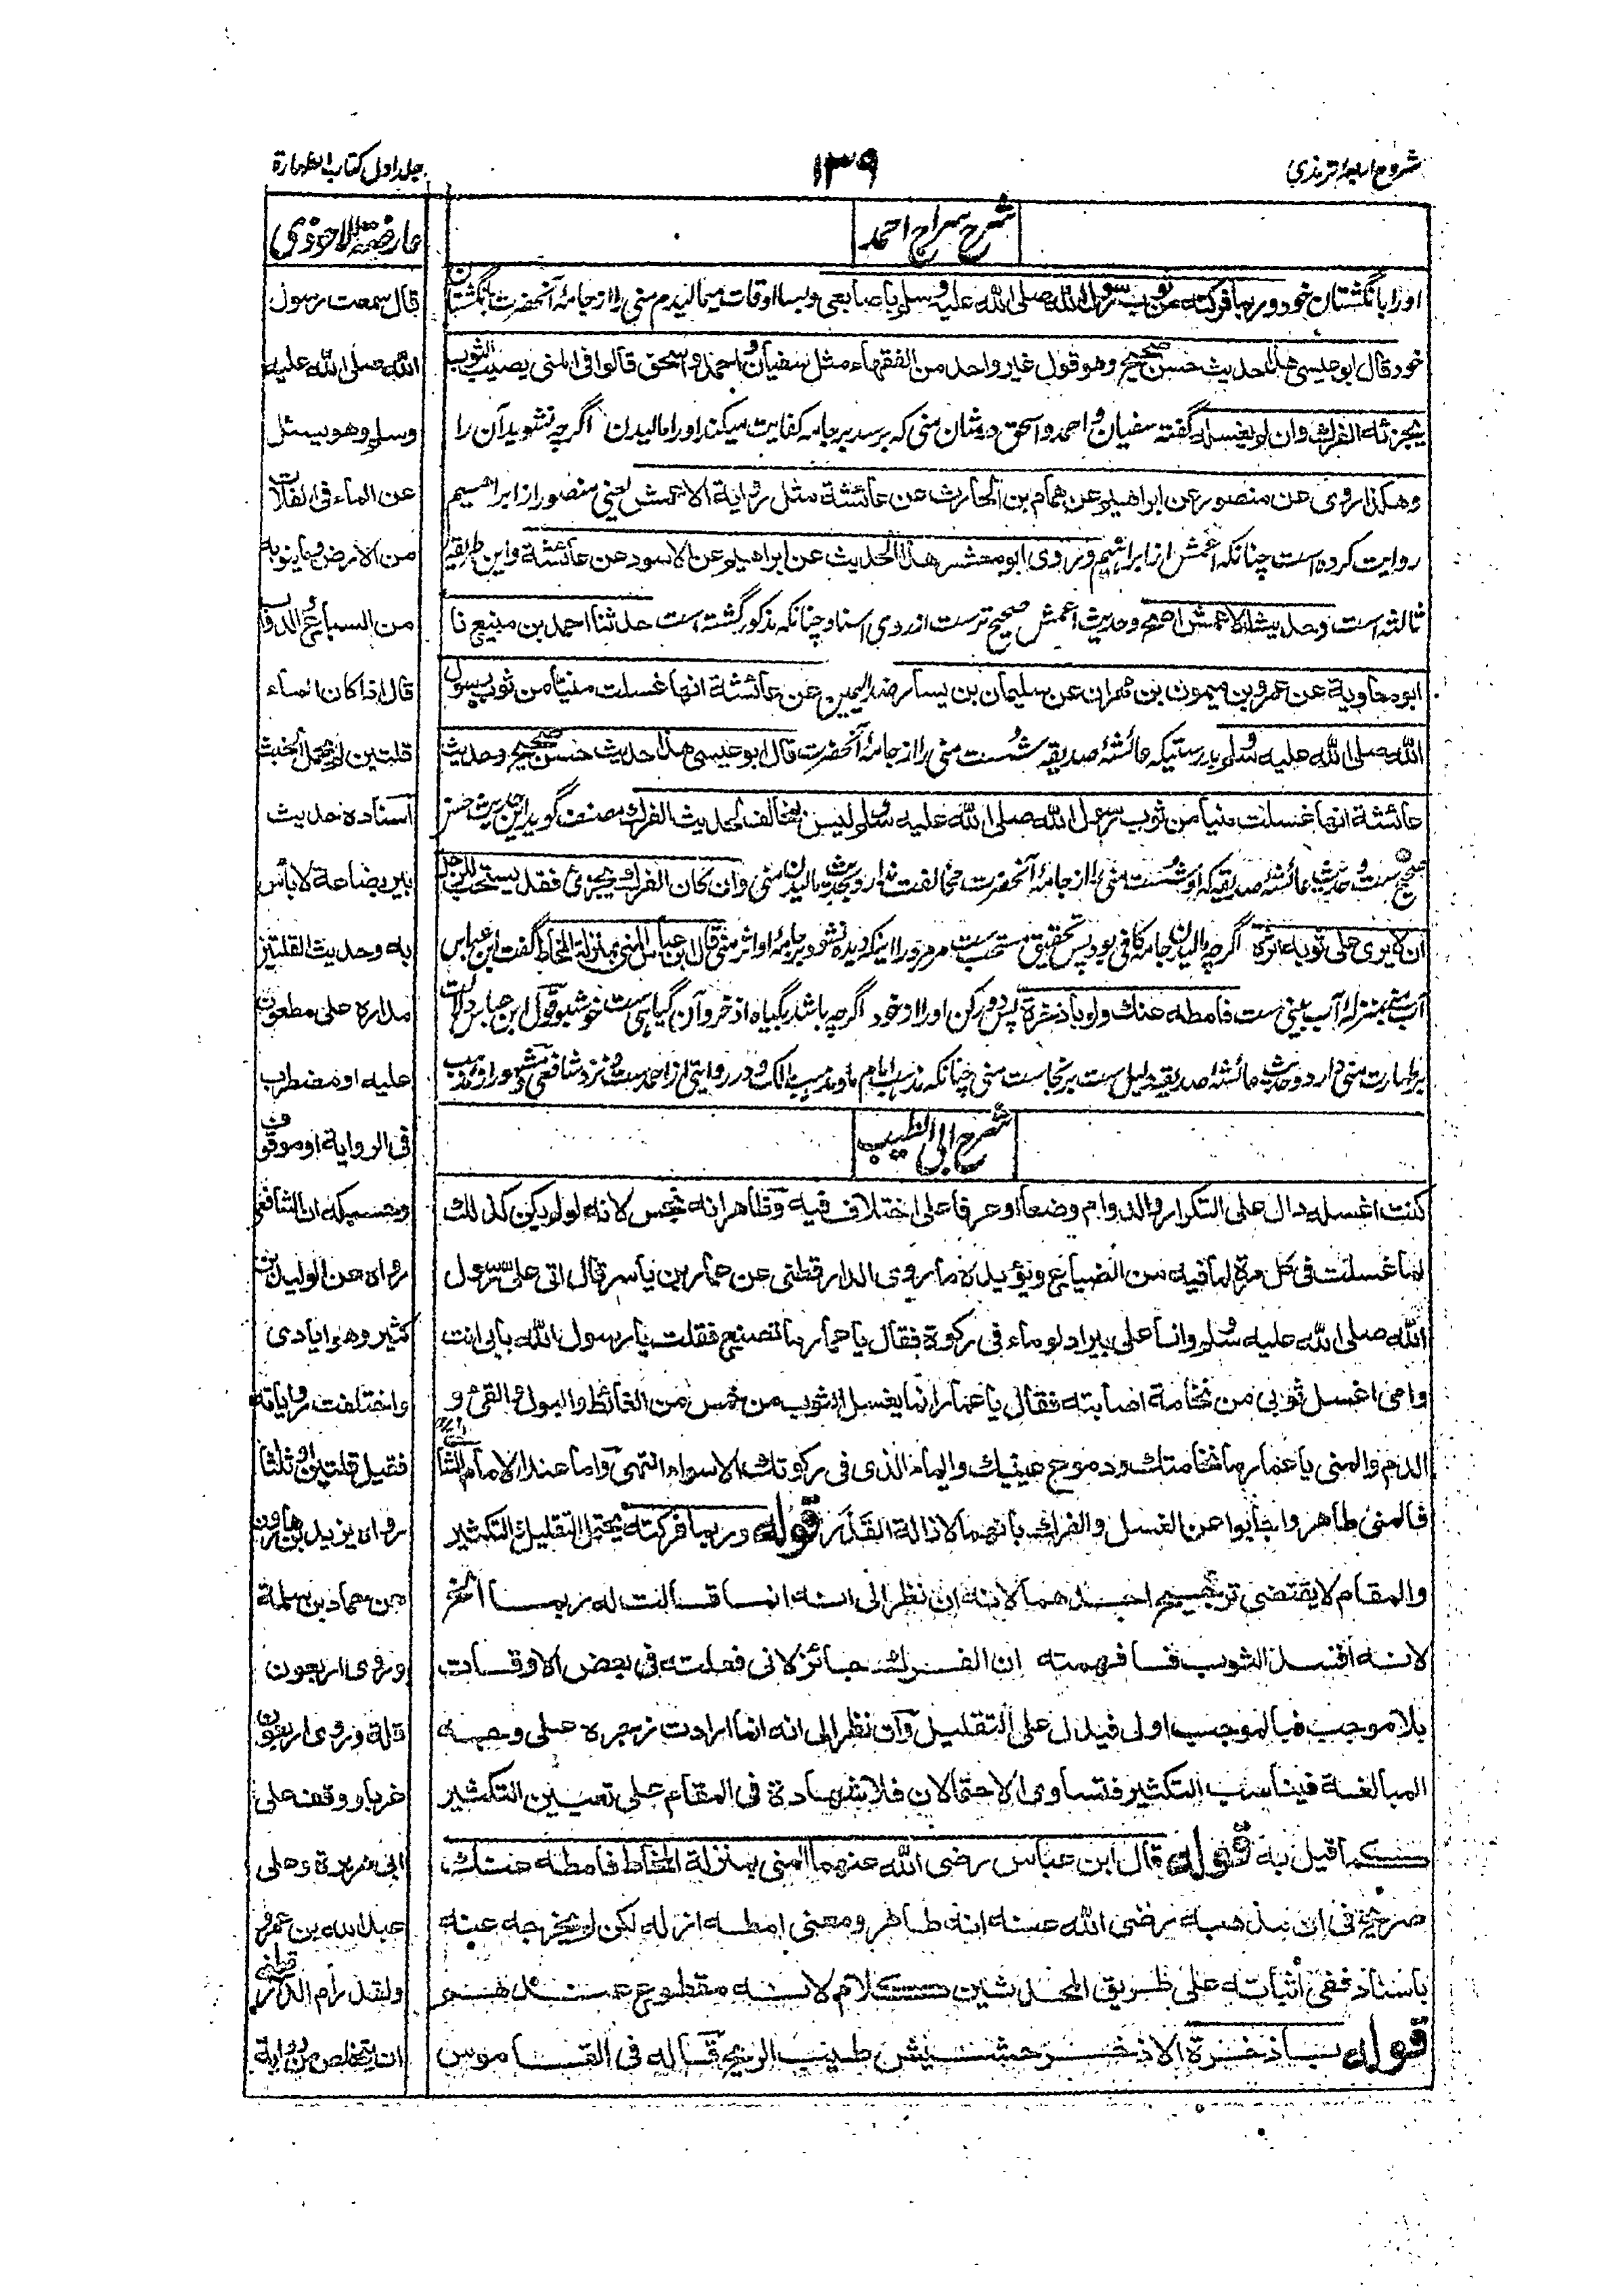 شروح اربعۂ ترمذی
۱۳۹
جلد اول کتاب الطهارة
شرح سراج احمد
اورا بانگشتان خود وربما فرکته من ثوب رسول الله صلی الله علیه وسلم باصابعی وبسا اوقات میمالیدم منی را از جامۂ آنحضرت بانگشتان
خود قال ابو عیسی هذا حدیث حسن صحیح وهو قول غیر واحد من الفقهاء مثل سفیان واحمد واسحق قالوا فی المنی یصیب الثوب
یجزئه الفرك وان لم یغسله گفته سفیان واحمد واسحق در شان منی که برسد بر جامه کفایت میکند اورا مالیدن اگرچه نشوید آن را
وهکذا روی عن منصور عن ابراهیم عن همام بن الحارث عن عائشة مثل روایة الاعمش یعنی منصور از ابراهیم
روایت کرده است چنانکه اعمش از ابراهیم وروی ابو معشر هذا الحدیث عن ابراهیم عن الاسود عن عائشة واین طریقۂ
ثالثه است وحدیث الاعمش اصح وحدیث اعمش صحیح ترست از روی اسناد چنانکه مذکور گشته است حدثنا احمد بن منیع نا
ابو معاویة عن عمرو بن میمون بن مهران عن سلیمان بن یسار عن عائشة انها غسلت منیا من ثوب رسول
الله صلی الله علیه وسلم بدرستیکه عائشۂ صدیقه شست منی را از جامۂ آنحضرت قال ابو عیسی هذا حدیث حسن صحیح وحدیث
عائشة انها غسلت منیا من ثوب رسول الله صلی الله علیه وسلم لیس بمخالف لحدیث الفرك مصنف گوید این حدیث حسن
صحیح ست وحدیث عائشۂ صدیقه که او شست منی را از جامۂ آنحضرت مخالفت ندارد بحدیث مالیدن منی وان کان الفرك یجزئ فقد یستحب للرجل
ان لا یری علی ثوبه اثره اگرچه مالیدن جامه کافی بود پس تحقیق مستحب ست مر مرد را اینکه دیده نشود بر جامۂ او اثر منی قال ابن عباس المنی بمنزلة المخاط گفت ابن عباس
آب منی بمنزلۂ آب بینی ست فامطه عنك ولو باذخرة پس دور کن اورا از خود اگرچه باشد بگیاه اذخر وآن گیاهی ست خوشبو قول ابن عباس دلالت
بر طهارت منی دارد وحدیث عائشۂ صدیقه دلیل ست بر نجاست منی چنانکه مذهب امام ما ومذهب مالك ودر روایتی از احمد ست ونزد شافعی
شرح ابی الطیب
کنت اغسله دال علی التکرار والدوام وضعا او عرفا علی اختلاف فیه وظاهر انه نجس لانه لو لم یکن کذلك
لما غسلت فی کل مرة لما فیه من الضیاع ویؤیده ما روی الدارقطنی عن عمار بن یاسر قال اتی علی رسول
الله صلی الله علیه وسلم وانا علی بیر ادلو ماء فی رکوة فقال یا عمار ما تصنع فقلت یا رسول الله بابی انت
وامی اغسل ثوبی من نخامة اصابته فقال یا عمار انما یغسل الثوب من خمس من الغائط والبول والقیء و
الدم والمنی یا عمار ما نخامتك ودموع عینیك والماء الذی فی رکوتك الا سواء انتهی واما عند الامام الشافعی
فالمنی طاهر واجابوا عن الغسل والفرك بانهما لازالة القذر قوله وربما فرکته یحتمل التقلیل والتکثیر
والمقام لا یقتضی ترجیح احدهما لانه ان نظر الی انه انما قالت له ربما الخ
لانه افسد الثوب فافهمته ان الفرك جائز لانی فعلته فی بعض الاوقات
بلا موجب فبالموجب اولی فیدل علی التقلیل وان نظر الی انه انما ارادت زجره علی وجه
المبالغة فیناسب التکثیر فتساوی الاحتمالان فلا شهادة فی المقام علی تعیین التکثیر
کما قیل به قوله قال ابن عباس رضی الله عنهما المنی بمنزلة المخاط فامطه عنك
صریح فی ان مذهبه رضی الله عنه انه طاهر ومعنی امطه ازله لکن لم یخرجه عنه
باسناد ففی اثباته علی طریق المحدثین کلام لانه مقطوع عندهم
قوله باذخرة الاذخر حشیش طیب الریح قاله فی القاموس
عارضة الاحوذی
قال سمعت رسول
الله صلی الله علیه
وسلم وهو یسئل
عن الماء فی الفلات
من الارض وما ینوبه
من السباع والدواب
قال اذا کان الماء
قلتین لم یحمل الخبث
اسناده حدیث
بیر بضاعة لا بأس
به وحدیث القلتین
مداره علی مطعون
علیه او مضطرب
فی الروایة او موقوف
وحسبك ان الشافعی
رواه عن الولید بن
کثیر وهو اباضی
واختلفت روایاته
فقیل قلتین او ثلثا
رواه یزید بن هارون
عن حماد بن سلمة
وروی اربعون
قلة وروی اربعون
غربا ووقفه علی
ابی هریرة وعلی
عبد الله بن عمرو
ولقد رام الدارقطنی
ان یتخلص من روایة